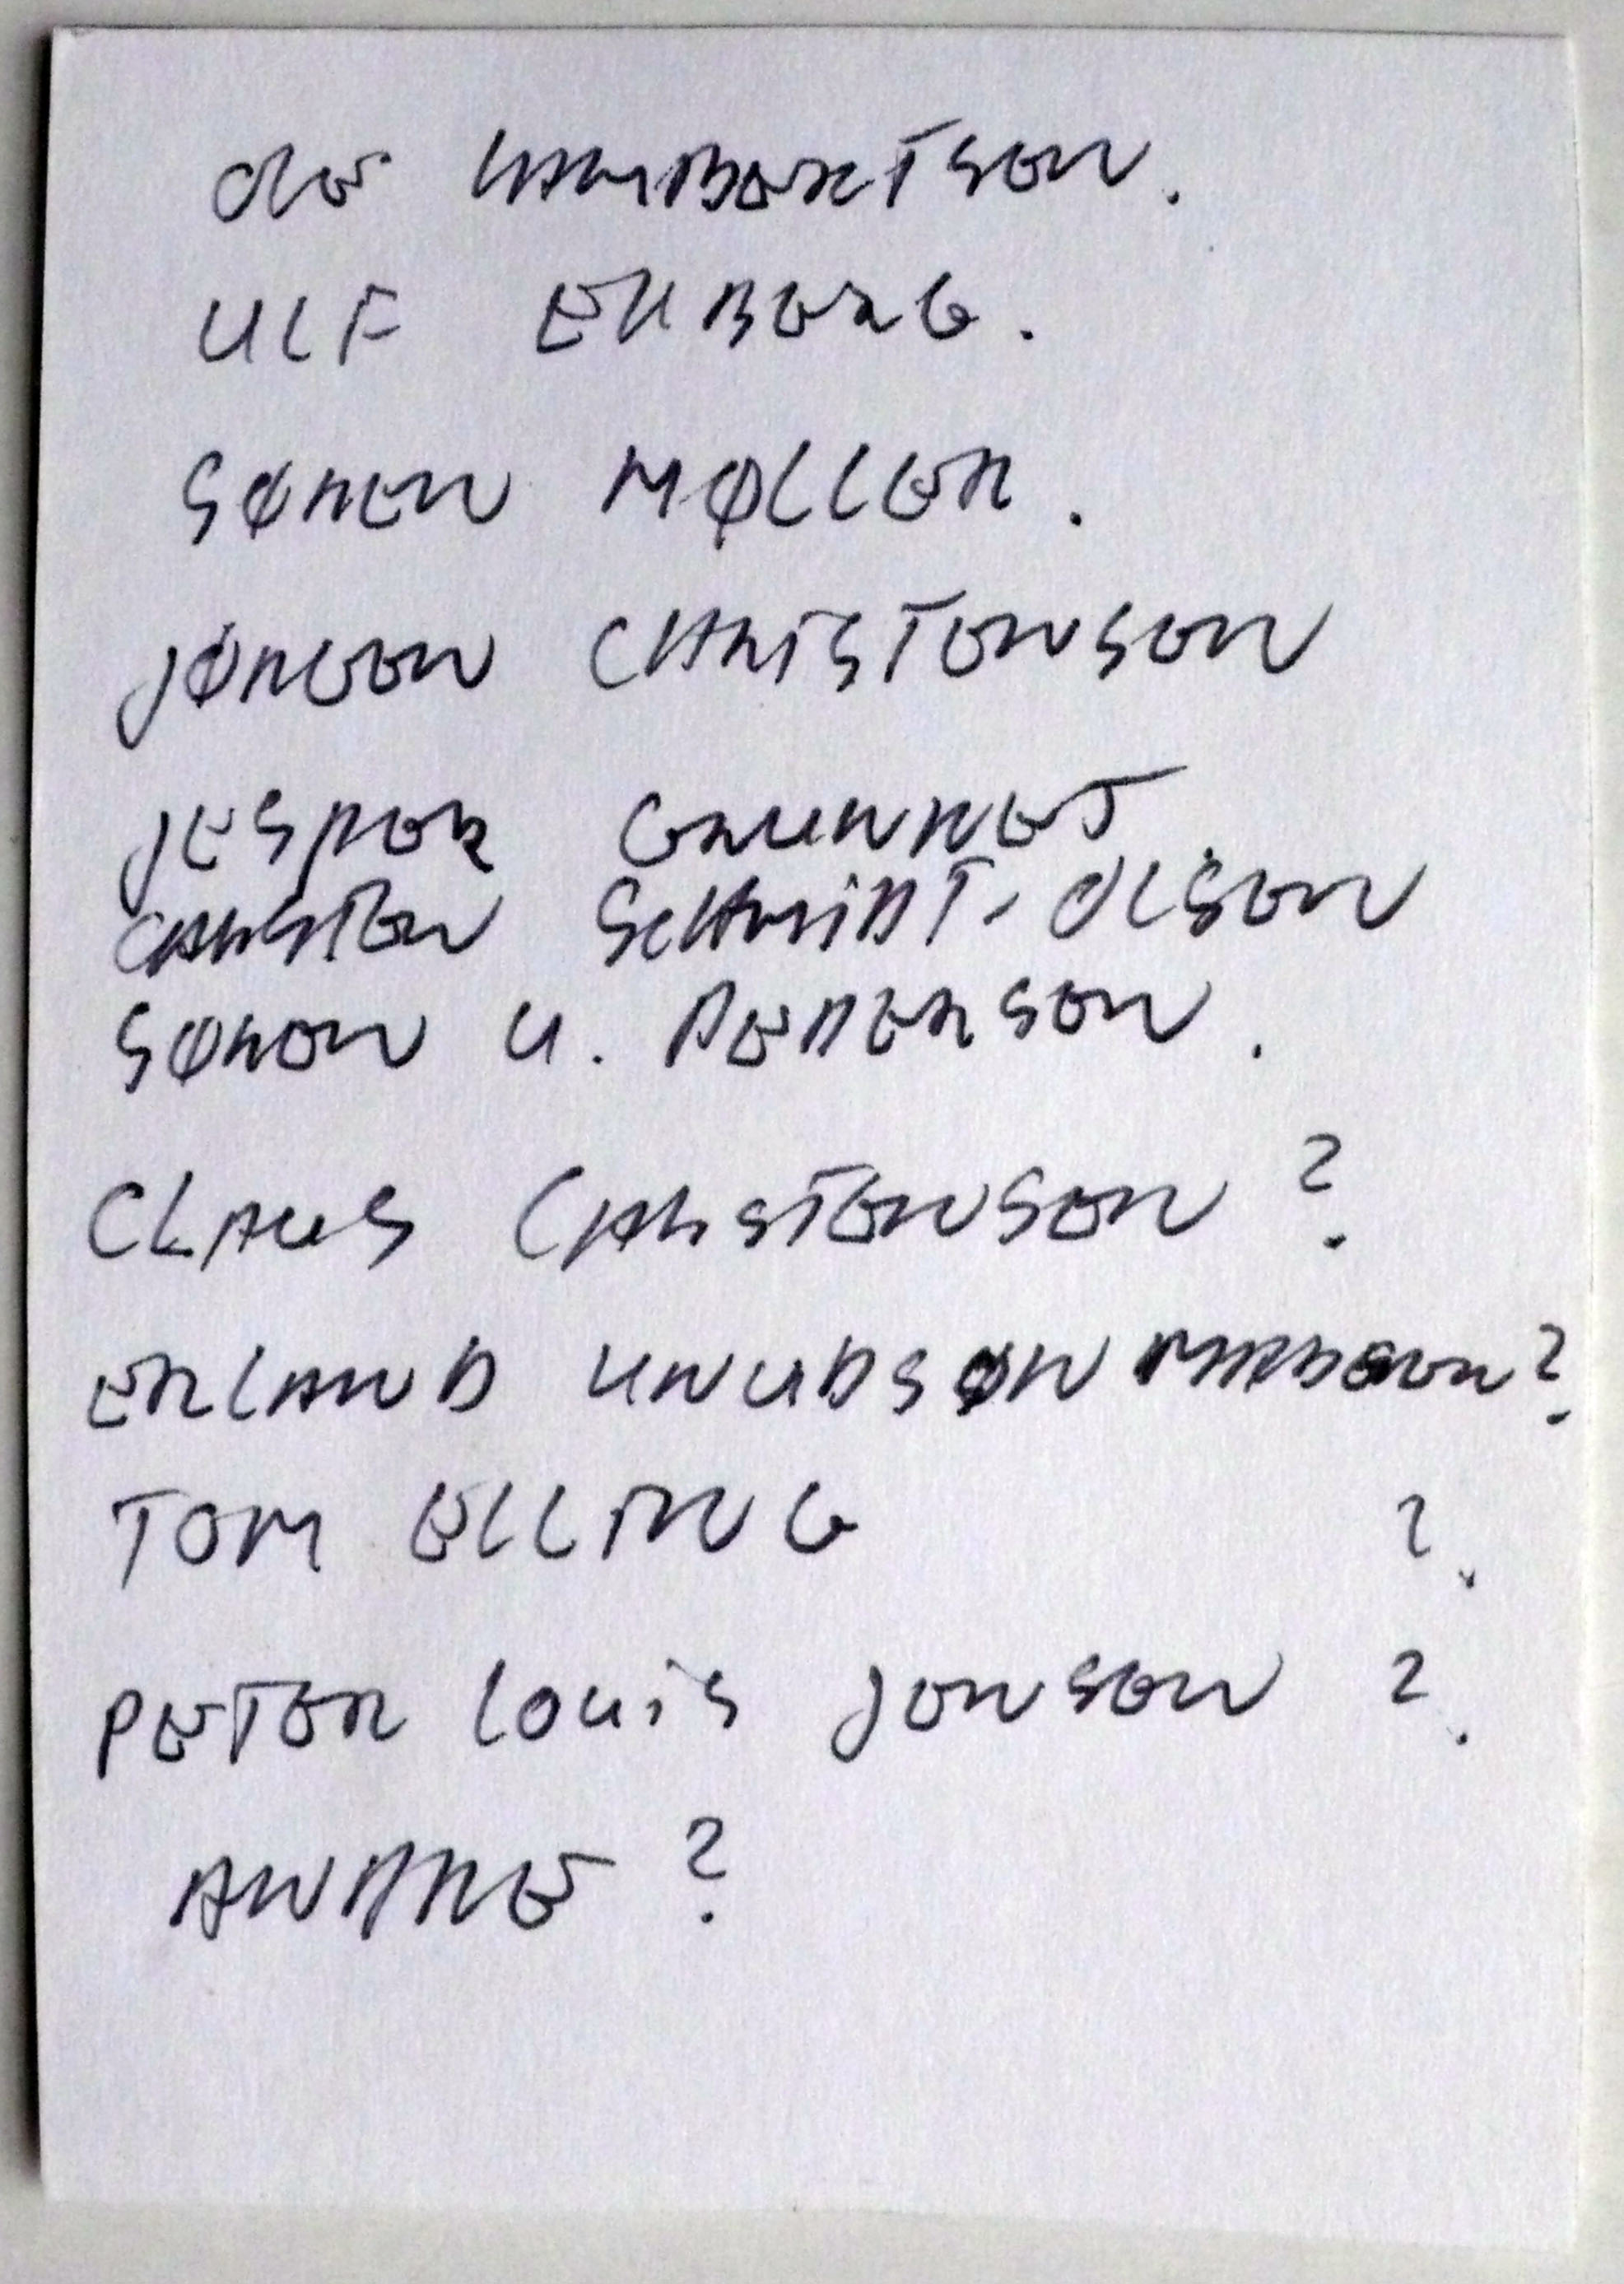 OLE LAMBERTSEN.
ULF EKBERG.
SØREN MØLLER.
JØRGEN CHRISTENSEN
JESPER GRUNNET.
CARSTEN SCHMIDT-OLSEN
SØREN U. PEDERSEN.
CLAUS CARSTENSEN?
ERLAND KNUDSØN MADSEN?
TOM ELLING ?
PETER LOUIS JENSEN ?
ANDRE ?